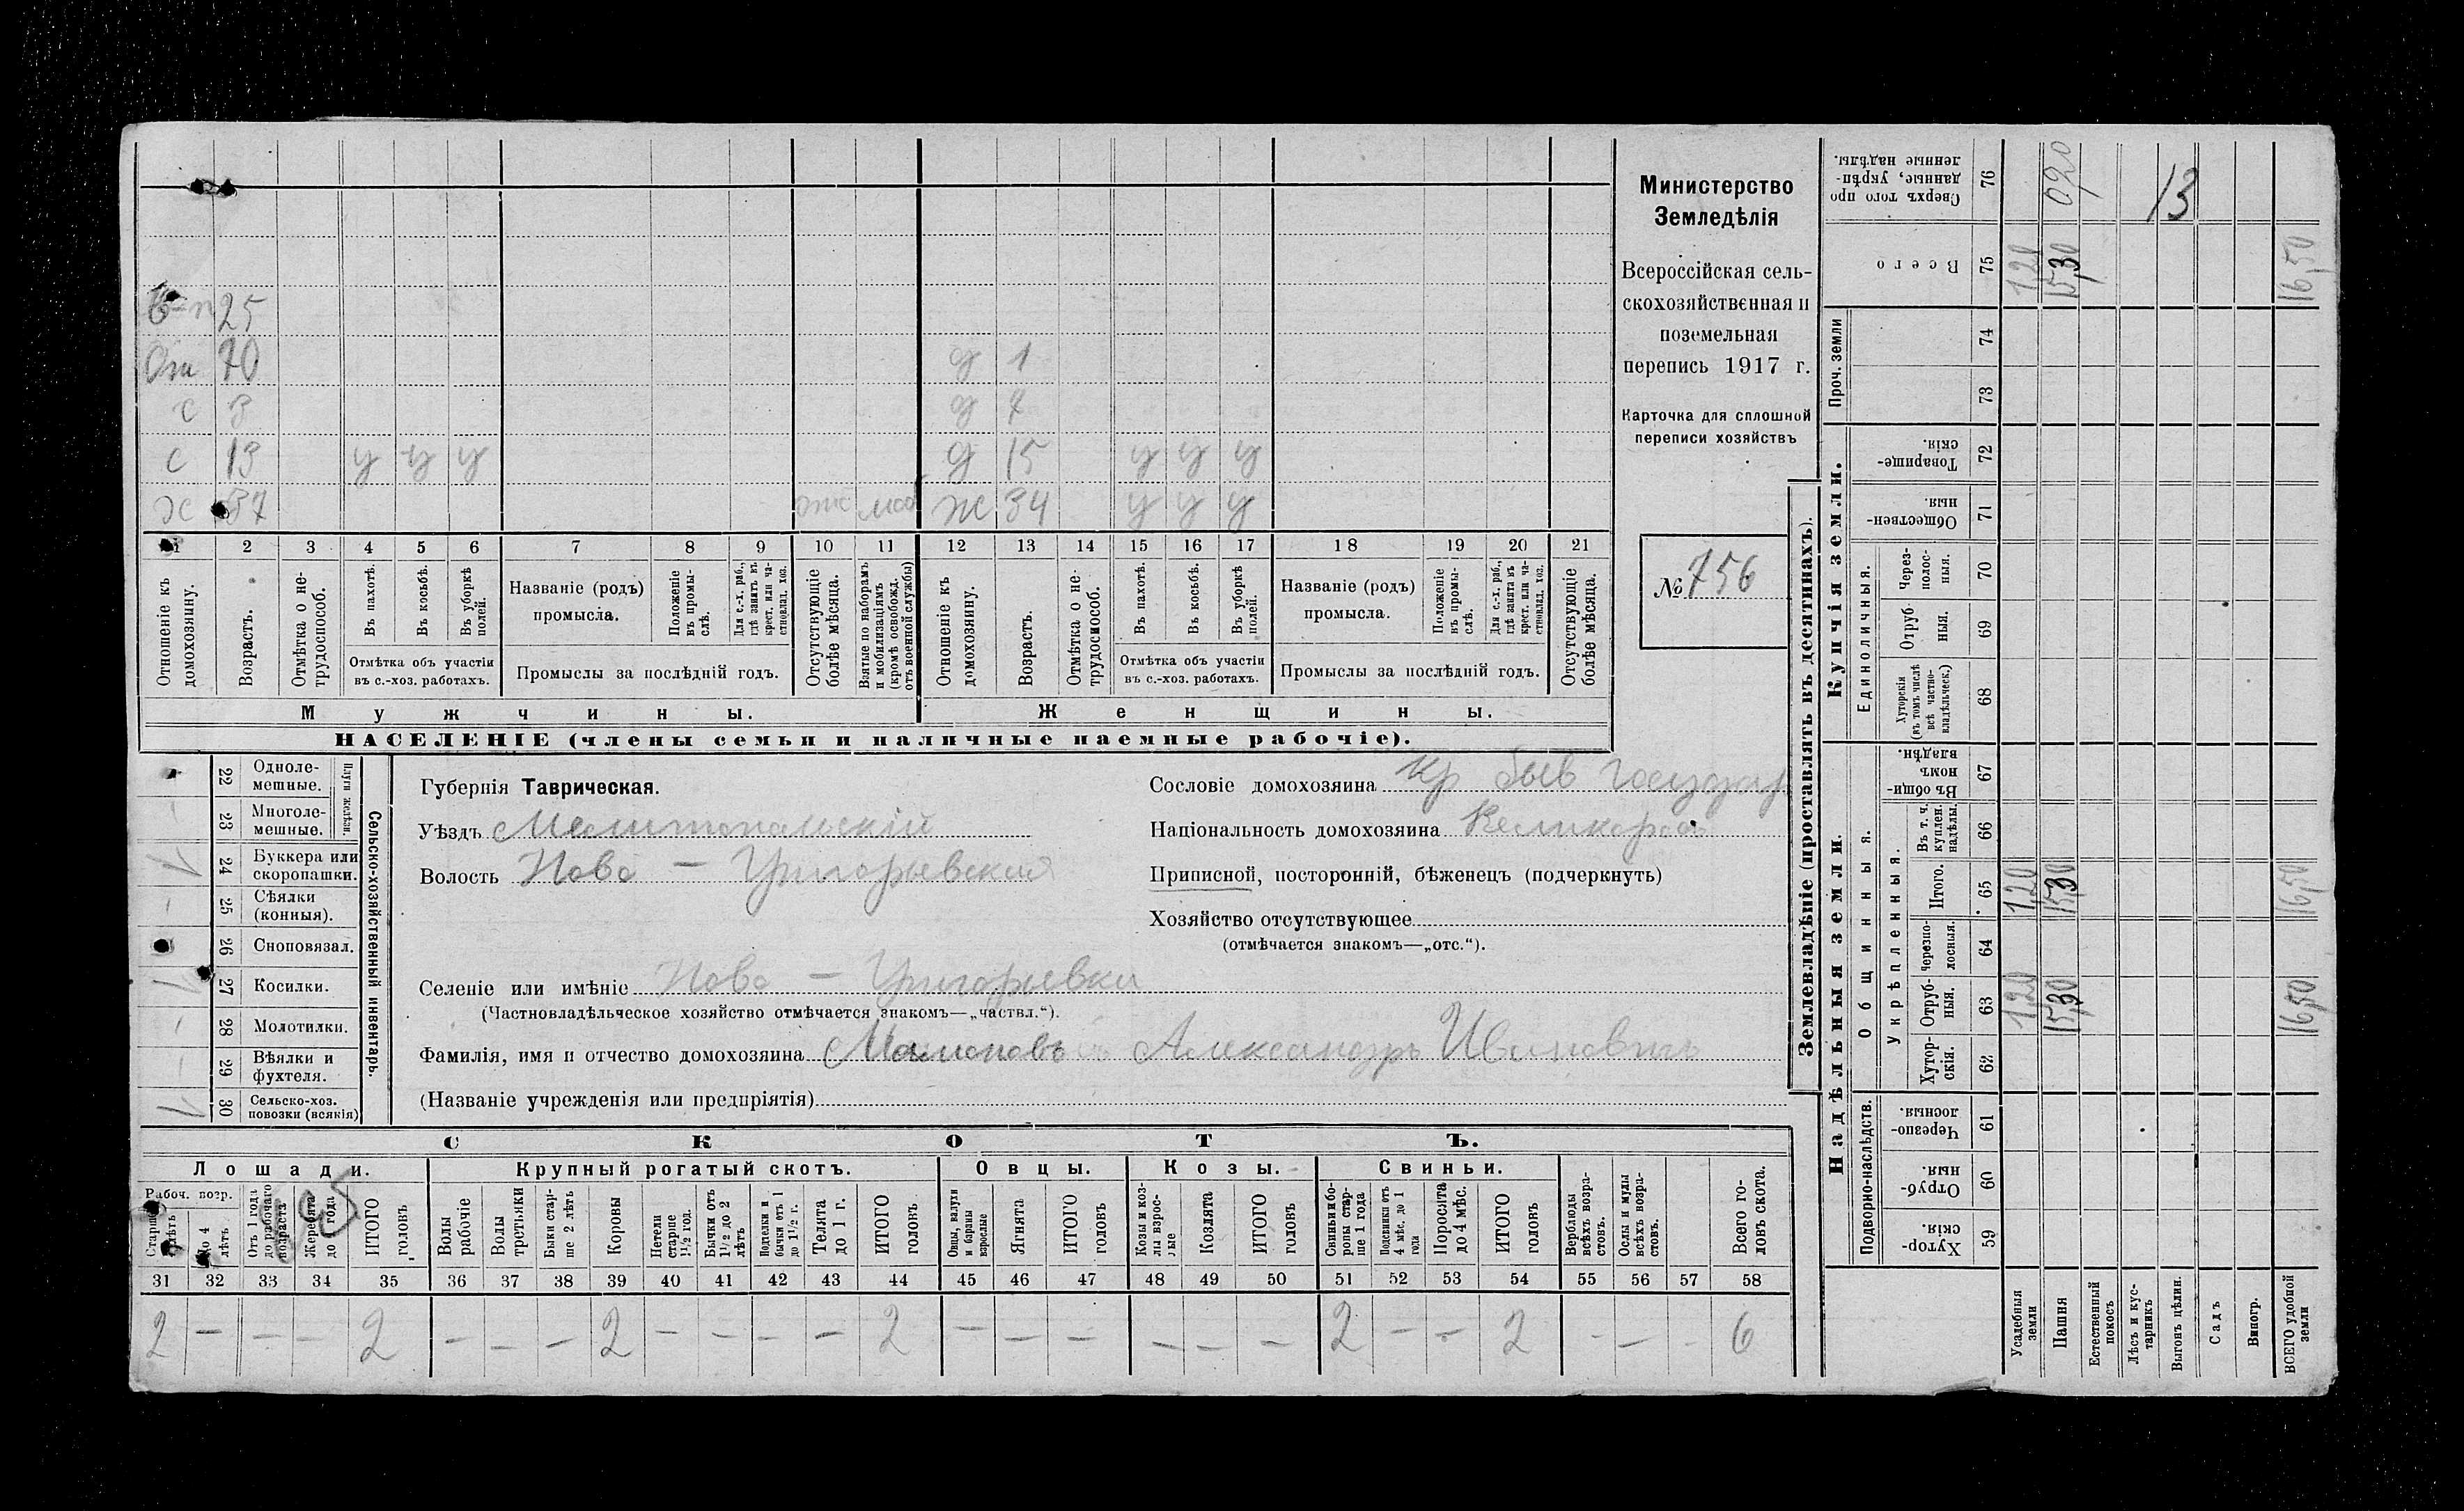 25
От 70 д 1
с 8 д 7
с 13 у у у д 15 у у у
Х 37 отс моб Ж 34 у у у
1 2 3 4 5 6 7 8 9 10 11 12 13 14 15 16 17 18 19 20 21
Отношеніе къ домохозяину.
Возрастъ.
Отмѣтка о нетрудоспособ.
Въ пахотѣ.
Въ косьбѣ.
Въ уборкѣ полей.
Отмѣтка объ участіи
въ с.-хоз. работахъ.
Названіе (родъ)
промысла.
Положеніе въ промыслѣ.
Для с.-х. раб., гдѣ занятъ въ крест. или частновлад. хоз.
Промыслы за послѣдній годъ.
Отсутствующіе болѣе мѣсяца.
Взятые по наборамъ и мобилизаціямъ (кромѣ освобожд. отъ военной службы)
Отношеніе къ домохозяину.
Возрастъ.
Отмѣтка о нетрудоспособ.
Въ пахотѣ.
Въ косьбѣ.
Въ уборкѣ полей.
Отмѣтка объ участіи
въ с.-хоз. работахъ.
Названіе (родъ)
промысла.
Положеніе въ промыслѣ.
Для с.-х. раб., гдѣ занята въ крест. или частновлад. хоз.
Промыслы за послѣдній годъ.
Отсутствующіе болѣе мѣсяца.
Мужчины. Женщины.
НАСЕЛЕНІЕ (члены семьи и наличные наемные рабочіе).
Министерство
Земледѣлія
Всероссійская сель-
скохозяйственная и
поземельная
перепись 1917 г.
Карточка для сплошной
переписи хозяйствъ
№ 756
22 Однолемешные.
23 Многолемешные.
Плуги желѣзн.
24 Буккера или скоропашки.
25 Сѣялки (конныя).
26 Сноповязал.
27 Косилки.
28 Молотилки.
29 Вѣялки и фухтеля.
30 Сельско-хоз. повозки (всякія)
Сельско-хозяйственный инвентарь.
Губернія Таврическая.
Уѣздъ Мелитопольскій
Волость Ново - Григорьевская
Селеніе или имѣніе Ново - Григорьевка
(Частновладѣльческое хозяйство отмѣчается знакомъ—„частвл.“).
Фамилія, имя и отчество домохозяина Мамоновъ Александръ Ивановичъ
(Названіе учрежденія или предпріятія)
Сословіе домохозяина Кр быв государ
Національность домохозяина Великоросъ
Приписной, посторонній, бѣженецъ (подчеркнуть)
Хозяйство отсутствующее
(отмѣчается знакомъ—„отс.“).
СКОТЪ.
Лошади. Крупный рогатый скотъ. Овцы. Козы. Свиньи.
Рабоч. возр.
Старше 4 лѣтъ
До 4 лѣтъ
Отъ 1 года до рабочаго возраста
Жеребята до 1 года
ИТОГО головъ
Волы рабочіе
Волы третьяки
Быки старше 2 лѣтъ
Коровы
Нетели старше 1½ год.
Бычки отъ 1½ до 2 лѣтъ
Подтелки и бычки отъ 1 до 1½ г.
Телята до 1 г.
ИТОГО головъ
Овцы, валухи и бараны взрослые
Ягнята
ИТОГО головъ
Козы и козлы взрослые
Козлята
ИТОГО головъ
Свиньи и боровы старше 1 года
Подсвинки отъ 4 мѣс. до 1 года
Поросята до 4 мѣс.
ИТОГО головъ
Верблюды всѣхъ возрастовъ.
Ослы и мулы всѣхъ возрастовъ.
Всего головъ скота.
31 32 33 34 35 36 37 38 39 40 41 42 43 44 45 46 47 48 49 50 51 52 53 54 55 56 57 58
2 — — — 2 — — — 2 — — — — 2 — — — — — — 2 — — 2 - — - 6
Землевладѣніе (проставлять въ десятинахъ).
Сверхъ того проданные, укрѣпленные надѣлы. 76 0,20 13
Всего 75 1,20 15,30 16,50
Проч. земли
74
73
Купчія земли.
Товарищескія. 72
Общественныя. 71
Единоличныя.
Черезполосныя. 70
Отрубныя. 69
Хуторскія (въ томъ числѣ всѣ частновладѣльческ.) 68
Надѣльныя земли.
Общинныя.
Въ общинномъ владѣн. 67
Укрѣпленныя.
Въ т. ч. куплен. надѣлы. 66
Итого. 65 1,20 15,30 16,50
Черезполосныя. 64
Отрубныя. 63 1,20 15,30 16,50
Хуторскія. 62
Подворно-наслѣдств.
Черезполосныя. 61
Отрубныя. 60
Хуторскія. 59
Усадебныя земли
Пашня
Естественный покосъ
Лѣсъ и кустарникъ
Выгонъ цѣлин.
Садъ
Виногр.
ВСЕГО удобной земли